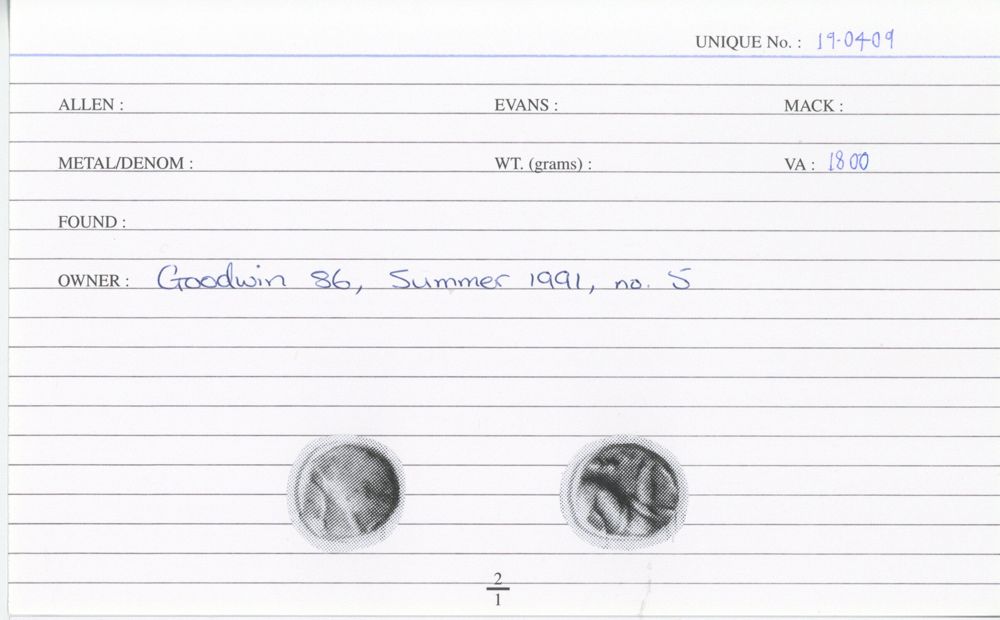 UNIQUE No. : 19-04-09
ALLEN : EVANS : MACK :
METAL/DENOM : WT. (grams) : VA : 1800
FOUND :
OWNER : Goodwin 86, Summer 1991, no. 5
2
1